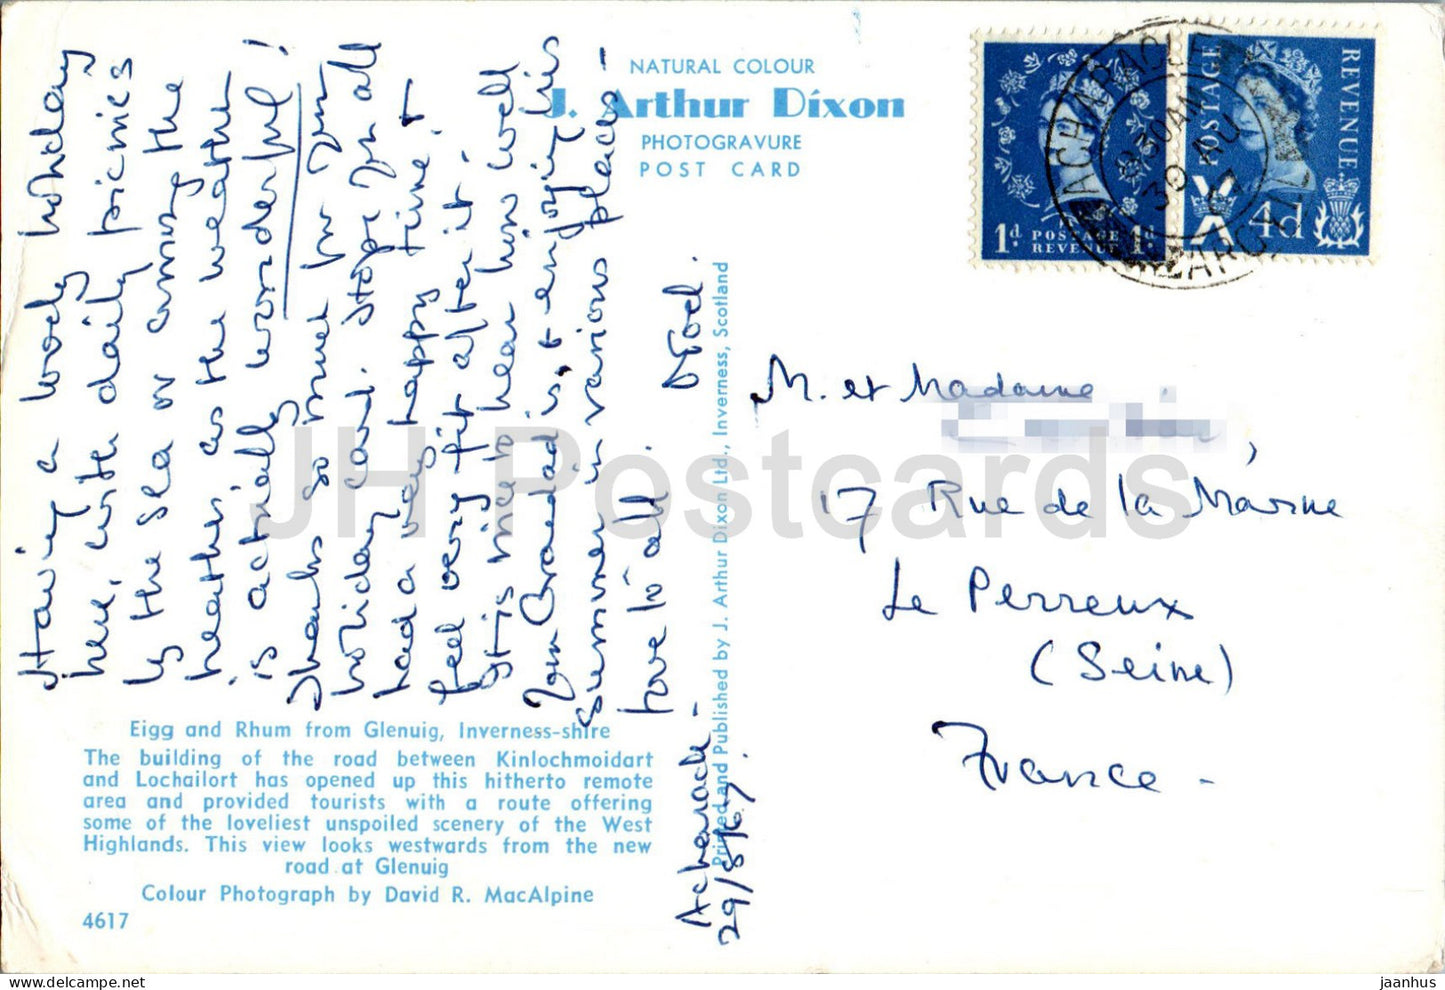 Having a lovely holiday
here, with daily picnics
by the sea or among the
heather, as the weather
is actually wonderful!
Thanks so much for your
holiday card. Hope you all
had a very happy time &
feel very fit after it.
It is nice to hear how well
your Grandad is, & enjoying his
summer in various places -
love to all.
Acharacle -
29/8/67.
NATURAL COLOUR
J. Arthur Dixon
PHOTOGRAVURE
POST CARD
Eigg and Rhum from Glenuig, Inverness-shire
The building of the road between Kinlochmoidart
and Lochailort has opened up this hitherto remote
area and provided tourists with a route offering
some of the loveliest unspoiled scenery of the West
Highlands. This view looks westwards from the new
road at Glenuig
Colour Photograph by David R. MacAlpine
4617
Printed and Published by J. Arthur Dixon Ltd., Inverness, Scotland
1d. POSTAGE 1d.
REVENUE
POSTAGE
REVENUE
4d
ACHARACLE
8 30AM
30 AU
67
ARGYLL
M. et Madame
17 Rue de la Marne
Le Perreux
(Seine)
France -
JH Postcards
jaanhus